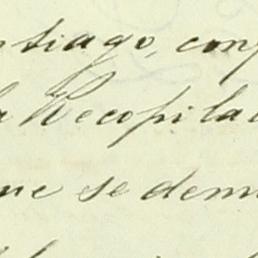 ntiago, conf
la Recopila
me se dem